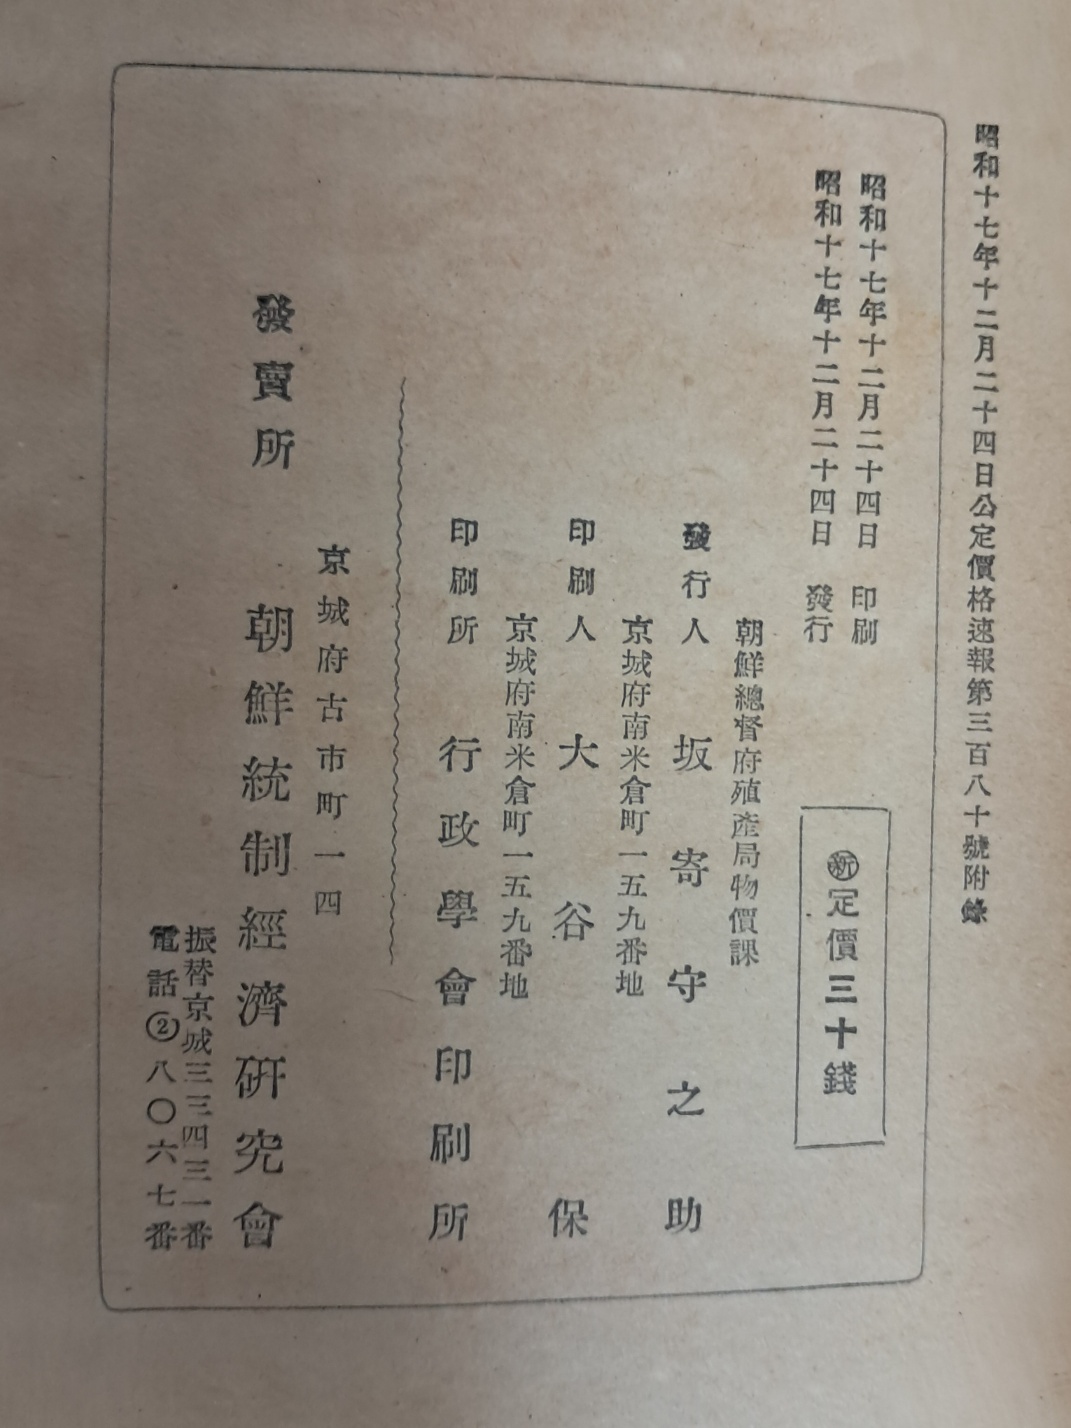 昭和十七年十二月二十四日公定價格速報第三百八十號附錄
昭和十七年十二月二十四日 印刷
昭和十七年十二月二十四日 發行
㊟定價三十錢
朝鮮總督府殖產局物價課
發行人 坂寄守之助
京城府南米倉町一五九番地
印刷人 大谷保
京城府南米倉町一五九番地
印刷所 行政學會印刷所
京城府古市町一四
發賣所 朝鮮統制經濟硏究會
振替京城三三四三一番
電話②八〇六七番